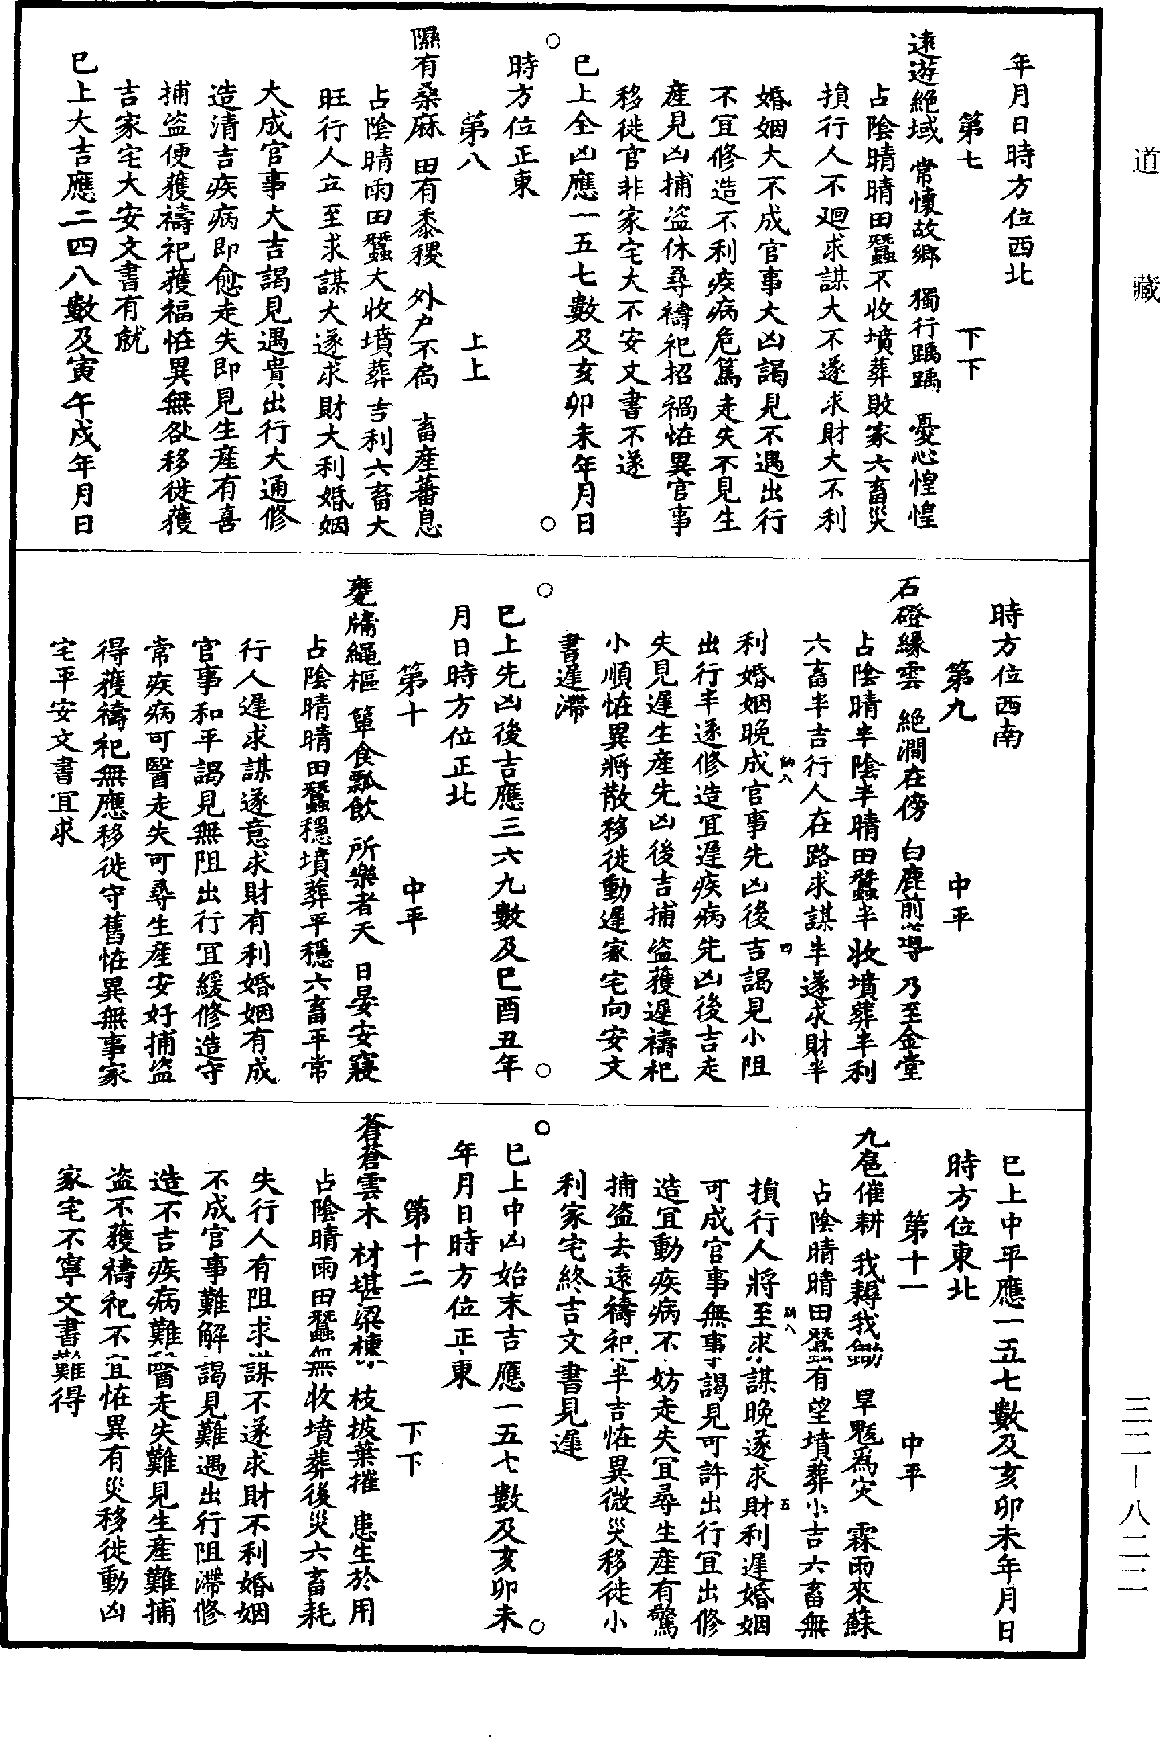 道藏
年月日時方位西北
第七　下下
遠遊絕域　常懷故鄉　獨行踽踽　憂心惶惶
占陰晴晴田蠶不收墳葬敗家六畜災
損行人不廻求謀大不遂求財大不利
婚姻大不成官事大凶謁見不遇出行
不宜修造不利疾病危篤走失不見生
產見凶捕盜休尋禱祀招禍恠異官事
移徙官非家宅大不安文書不遂
巳上全凶應一五七數及亥卯未年月日
○　○
時方位正東
第八　上上
隰有桑麻　田有黍稷　外戶不扃　畜產蕃息
占陰晴雨田蠶大收墳葬吉利六畜大
旺行人立至求謀大遂求財大利婚姻
大成官事大吉謁見遇貴出行大通修
造清吉疾病即愈走失即見生產有喜
捕盜便獲禱祀獲福恠異無咎移徙獲
吉家宅大安文書有就
巳上大吉應二四八數及寅午戌年月日
時方位西南
第九　中平
石磴緣雲　絕澗在傍　白鹿前導　乃至金堂
占陰晴半陰半晴田蠶半收墳葬半利
六畜半吉行人在路求謀半遂求財半
納八　四
利婚姻晚成官事先凶後吉謁見小阻
出行半遂修造宜遲疾病先凶後吉走
失見遲生產先凶後吉捕盜獲遲禱祀
小順恠異將散移徙動遲家宅向安文
書遲滯
○　○
巳上先凶後吉應三六九數及巳酉丑年
月日時方位正北
第十　中平
甕牖繩樞　簞食瓢飲　所樂者天　日晏安寢
占陰晴晴田蠶穩墳葬平穩六畜平常
行人遲求謀遂意求財有利婚姻有成
官事和平謁見無阻出行宜緩修造守
常疾病可醫走失可尋生產安好捕盜
得獲禱祀無應移徙守舊恠異無事家
宅平安文書宜求
巳上中平應一五七數及亥卯未年月日
時方位東北
第十一　中平
九扈催耕　我耨我鋤　旱魃為災　霖雨來蘇
占陰晴晴田蠶有望墳葬小吉六畜無
納八　五
損行人將至求謀晚遂求財利遲婚姻
可成官事無事謁見可許出行宜出修
造宜動疾病不妨走失宜尋生產有驚
捕盜去遠禱祀半吉恠異微災移徙小
利家宅終吉文書見遲
○　○
巳上中凶始末吉應一五七數及亥卯未
年月日時方位正東
第十二　下下
蒼蒼雲木　材堪梁棟　枝披葉摧　患生於用
占陰晴雨田蠶無收墳葬後災六畜耗
失行人有阻求謀不遂求財不利婚姻
不成官事難解謁見難遇出行阻滯修
造不吉疾病難醫走失難見生產難捕
盜不獲禱祀不宜恠異有災移徙動凶
家宅不寧文書難得
三二－八二三